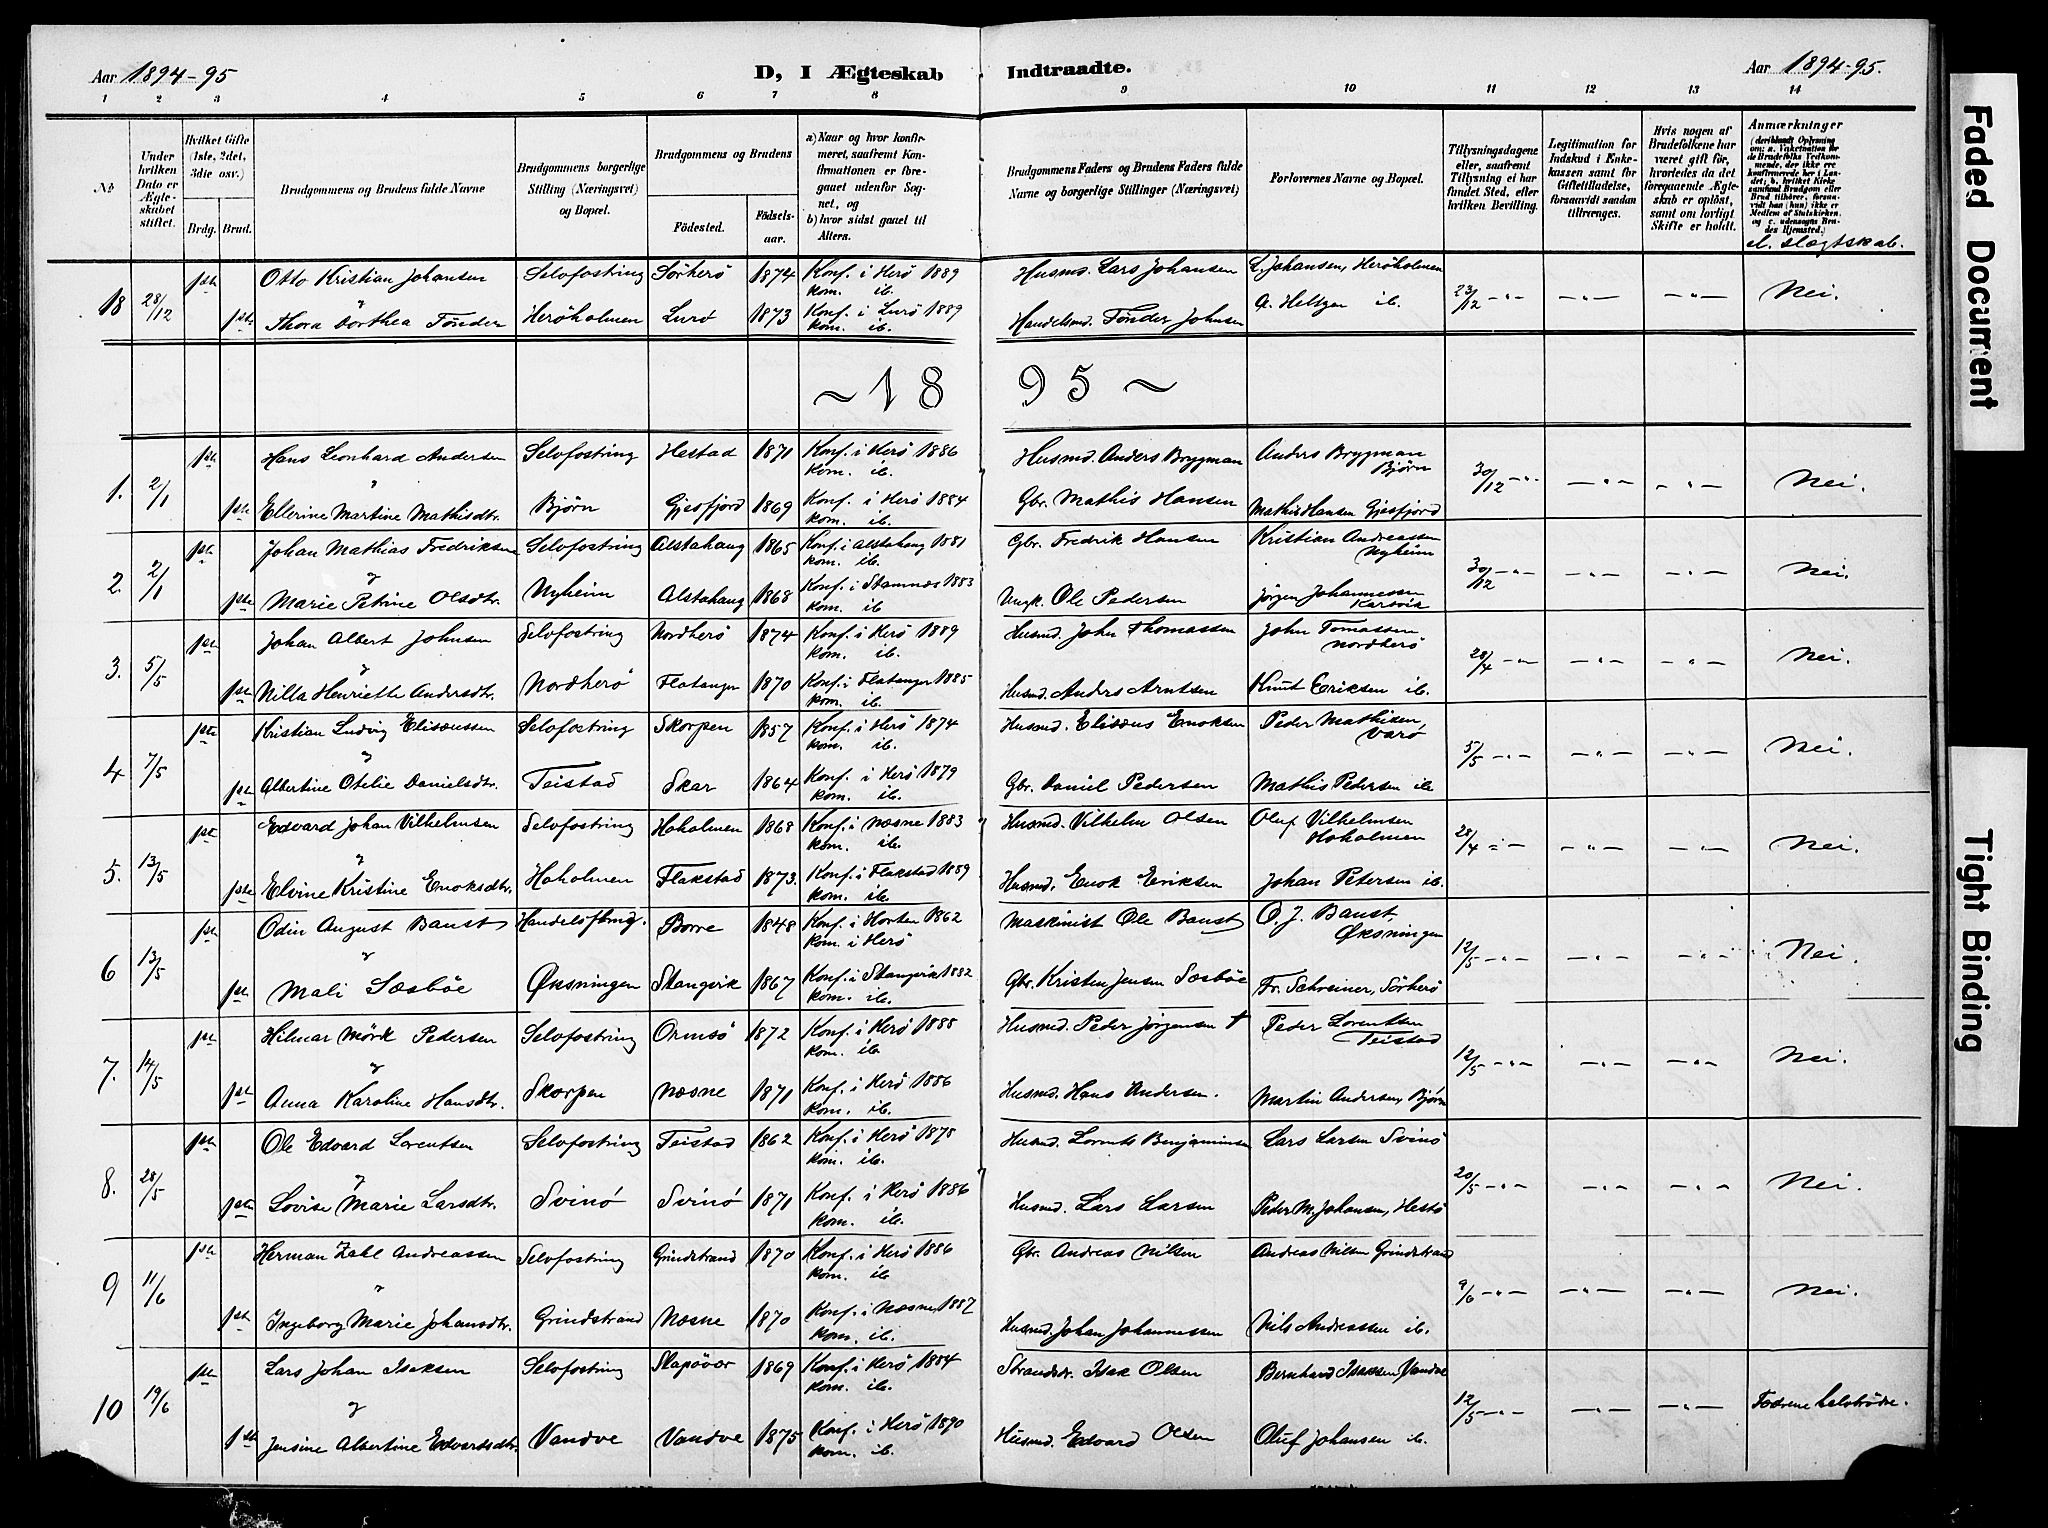 Aar 1894-95
D, I Ægteskab Indtraadte.
Aar 1894-95.
1 2 3 4 5 6 7 8 9 10 11 12 13 14
No
Under hvilken Dato er Ægteskabet stiftet.
Hvilket Gifte (1ste, 2det, 3die osv.)
Brdg. Brud.
Brudgommens og Brudens fulde Navne
Brudgommens borgerlige Stilling (Næringsvei) og Bopæl.
Brudgommens og Brudens
Fødested.
Fødselsaar.
a) Naar og hvor konfirmeret, saafremt Konfirmationen er foregaaet udenfor Sognet, og
b) hvor sidst gaaet til Alters.
Brudgommens Faders og Brudens Faders fulde Navne og borgerlige Stillinger (Næringsvei)
Forlovernes Navne og Bopæl.
Tillysningsdagene eller, saafremt Tillysning ei har fundet Sted, efter hvilken Bevilling.
Legitimation for Indskud i Enkekassen samt for Giftetilladelse, forsaavidt saadan tiltrænges.
Hvis nogen af Brudefolkene har været gift før, hvorledes da det foregaaende Ægteskab er opløst, samt om lovligt Skifte er holdt.
Anmærkninger
(deriblandt Oplysning om: a. Vaksination for de Brudefolks Vedkommende, der ikke ere konfirmerede her i Landet; b. hvilket Kirkesamfund Brudgom eller Brud tilhører, forsaavidt han (hun) ikke er Medlem af Statskirken, og c. udensogns Brudes Hjemsted.)
d. slægtskab.
18 28/12 1ste Otto Kristian Johansen Selvfostring Sörherö 1874 Konf. i Herö 1889 Husmd. Lars Johansen L. Johansen, Heröholmen 23/12 -"- -"- -"- Nei.
kom. ib.
og
1ste Thora Dorthea Tönder Heröholmen Lurö 1873 Konf. i Lurö 1889 Handelsmd. Tönder Johnsen A. Heltzen ib.
kom. ib.
~18 95~
1. 2/1 1ste Hans Leonhard Andersen Selvfostring Hestad 1871 Konf. i Herö 1886 Husmd. Anders Brygman Anders Brygman Bjørn 30/12 -"- -"- -"- Nei.
kom. ib.
og
1ste Ellerine Martine Mathisdtr. Bjørn Gjesfjord 1869 Konf. i Herö 1884 Gbr. Mathis Hansen Mathis Hansen Gjesfjord
kom. ib.
2. 2/1 1ste Johan Mathias Fredriksen Selvfostring Alstahaug 1865 Konf. i Alstahaug 1881 Gbr. Fredrik Hansen Kristian Andreassen Nyheim 30/12 -"- -"- -"- Nei.
kom. ib.
og
1ste Marie Petrine Olsdtr. Nyheim Alstahaug 1868 Konf. i Stamnæs 1883 Ungk. Ole Pedersen Jørgen Johannessen
kom. ib.
3. 5/5 1ste Johan Albert Johnsen Selvfostring Nordherö 1874 Konf. i Herö 1889 Husmd. John Thomassen John Tomassen Nordherö 28/4 -"- -"- -"- Nei.
kom. ib.
og
1ste Nilla Henriette Andersdtr. Nordherö Flatanger 1870 Konf. i Flatanger 1885 Husmd. Anders Arntsen Knut Eriksen ib.
kom. ib.
4 7/5 1ste Kristian Ludvig Elisæussen Selvfostring Skorpen 1857 Konf. i Herö 1874 Husmd. Elisæus Enoksen Peder Mathisen, Varö 5/5 -"- -"- -"- Nei.
kom. ib.
og
1ste Albertine Otelie Danielsdtr. Teistad Skar 1864 Konf. i Herö 1879 Gbr. Daniel Pedersen Mathis Pedersen ib
kom. ib.
5. 13/5 1ste Edvard Johan Vilhelmsen Selvfostring Hoholmen 1868 Konf. i Næsne 1883 Husmd. Vilhelm Olsen Oluf Vilhelmsen Hoholmen 28/4 -"- -"- -"- Nei.
kom. ib.
og
1ste Elvine Kristine Enoksdtr. Hoholmen Flakstad 1873. Konf. i Flakstad 1889 Husmd. Enok Eriksen Johan Petersen ib.
kom. ib.
6 13/5 1ste Odin August Banst Borre 1848 Konf. i Horten 1862 Maskinist Ole Banst O. J. Banst, Øksningen 12/5 -"- -"- -"- Nei.
kom. i Herö
og
1ste Mali Sæsböe Øksningen Stangvik 1867 Konf. i Stangvik 1882 Gbr. Kristen Jensen Sæsböe Fr. Schreiner, Sörherö
kom. ib.
7. 14/5 1ste Hilmar Mörk Pedersen Selvfostring Ormsö 1872 Konf. i Herö 1888 Husmd. Peder Jørgensen † Peder Lorentsen Teistad 12/5 -"- -"- -"- Nei.
kom. ib.
og
1ste Anna Karoline Hansdtr. Skorpen Næsne 1871 Konf. i Herö 1886 Husmd. Hans Andersen. Martin Andersen, Bjørn
kom. ib.
8. 28/5 1ste Ole Edvard Lorentsen Selvfostring Teistad 1862 Konf. i Herö 1878 Husmd. Lorents Benjaminsen Lars Larsen Svinö 20/5 -"- -"- -"- Nei.
kom. ib.
og
1ste Lovise Marie Larsdtr. Svinö Svinö 1871 Konf. i Herö 1886 Husmd. Lars Larsen Peder M. Johansen, Hestö
kom. ib.
9 11/6 1ste Herman Zahl Andreassen Selvfostring Grindstrand 1870 Konf. i Herö 1886 Gbr. Andreas Nilsen Andreas Nilsen Grindstrand 9/6 -"- -"- -"- Nei.
kom. ib
og
1ste Ingeborg Marie Johansdtr. Grindstrand Næsne 1870 Konf. i Næsne 1887 Husmd. Johan Johannessen Nils Andreassen ib.
kom. ib.
10 19/6 1ste Lars Johan Isaksen Selvfostring Slapövær 1869 Konf. i Herö 1884 Strandsdr. Isak Olsen Bernhard Isaksen, Vandve 12/5 -"- -"- -"- Fædrene halvbrödre.
kom. ib.
og
1ste Jensine Albertine Edvardsdtr. Vandve Vandve 1875 Konf. i Herö 1890 Husmd. Edvard Olsen Oluf Johansen ib.
kom. ib.
Faded Document
Tight Binding